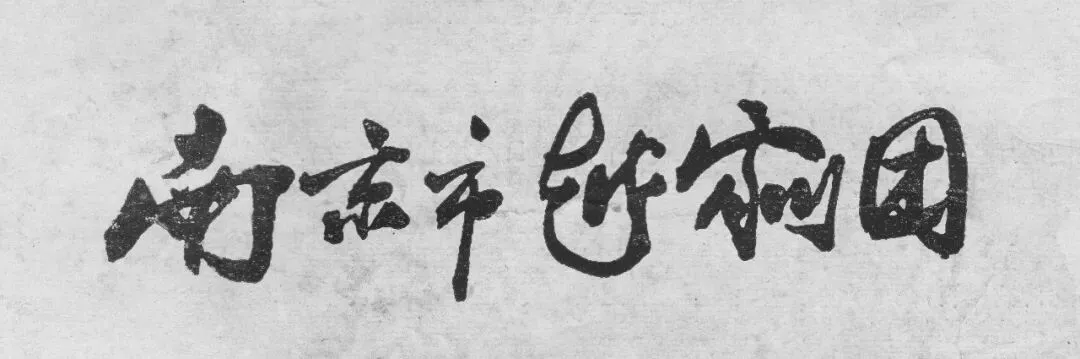 南京市越剧团